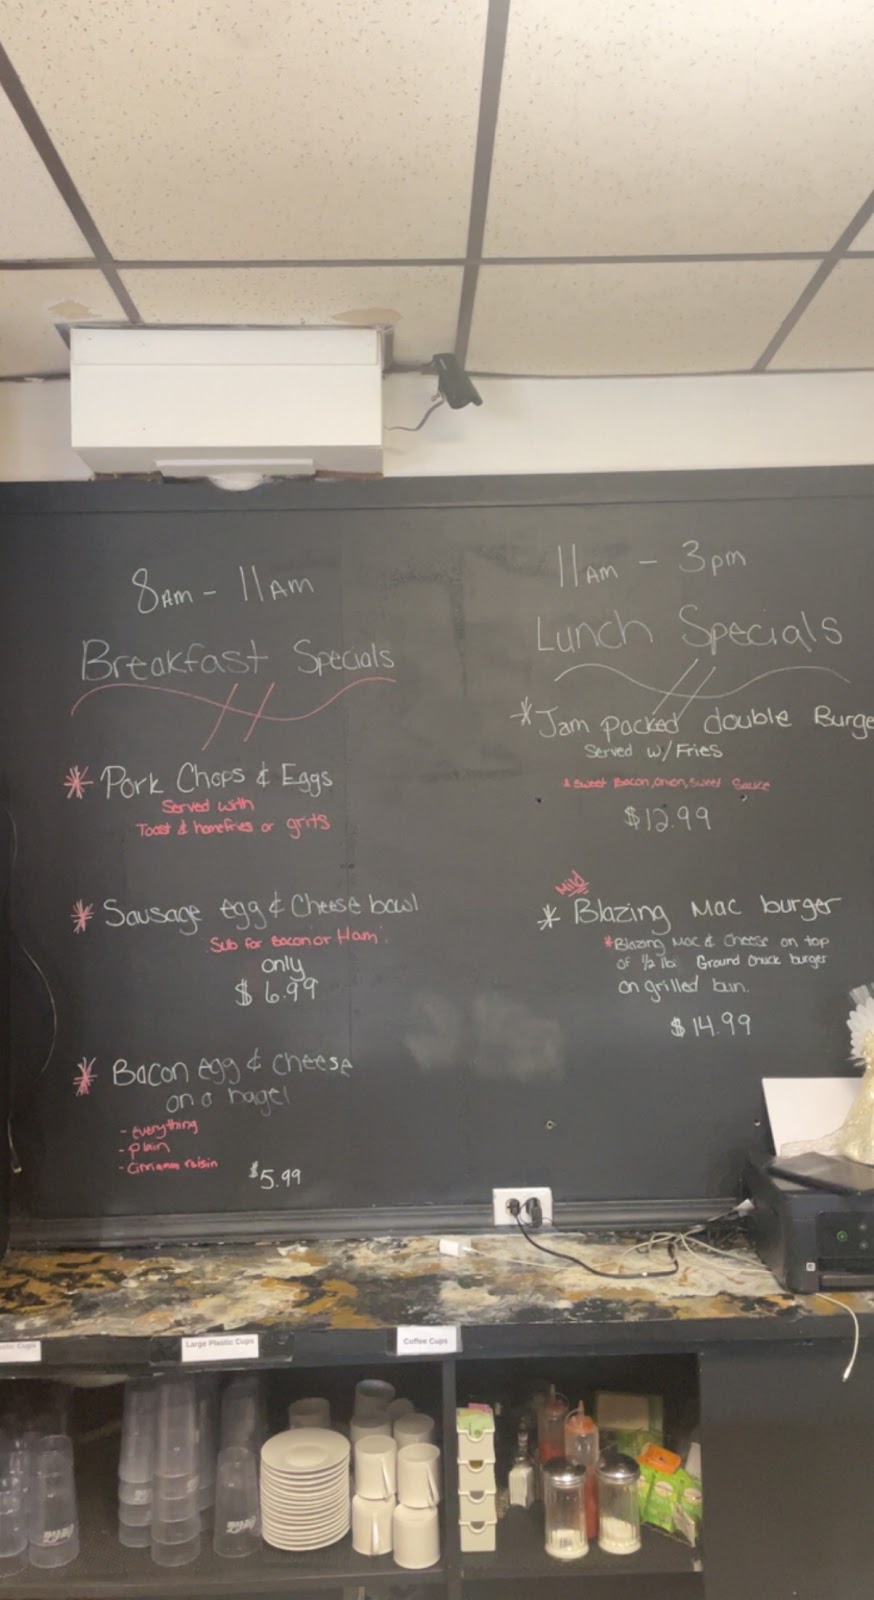 8AM - 11AM
Breakfast Specials
* Pork Chops & Eggs
Served with
Toast & homefries or grits
* Sausage egg & Cheese bowl
Sub for Bacon or Ham.
only
$6.99
* Bacon egg & cheese
on a bagel
- everything
- plain
- cinnamon raisin
$5.99
11AM - 3pm
Lunch Specials
* Jam packed double Burge
Served w/ Fries
* Sweet Bacon, onion, Sweet Sauce
$12.99
Mild
* Blazing Mac burger
* Blazing Mac & Cheese on top
of 1/2 lb Ground Chuck burger
on grilled bun.
$14.99
Cups
Large Plastic Cups
Coffee Cups